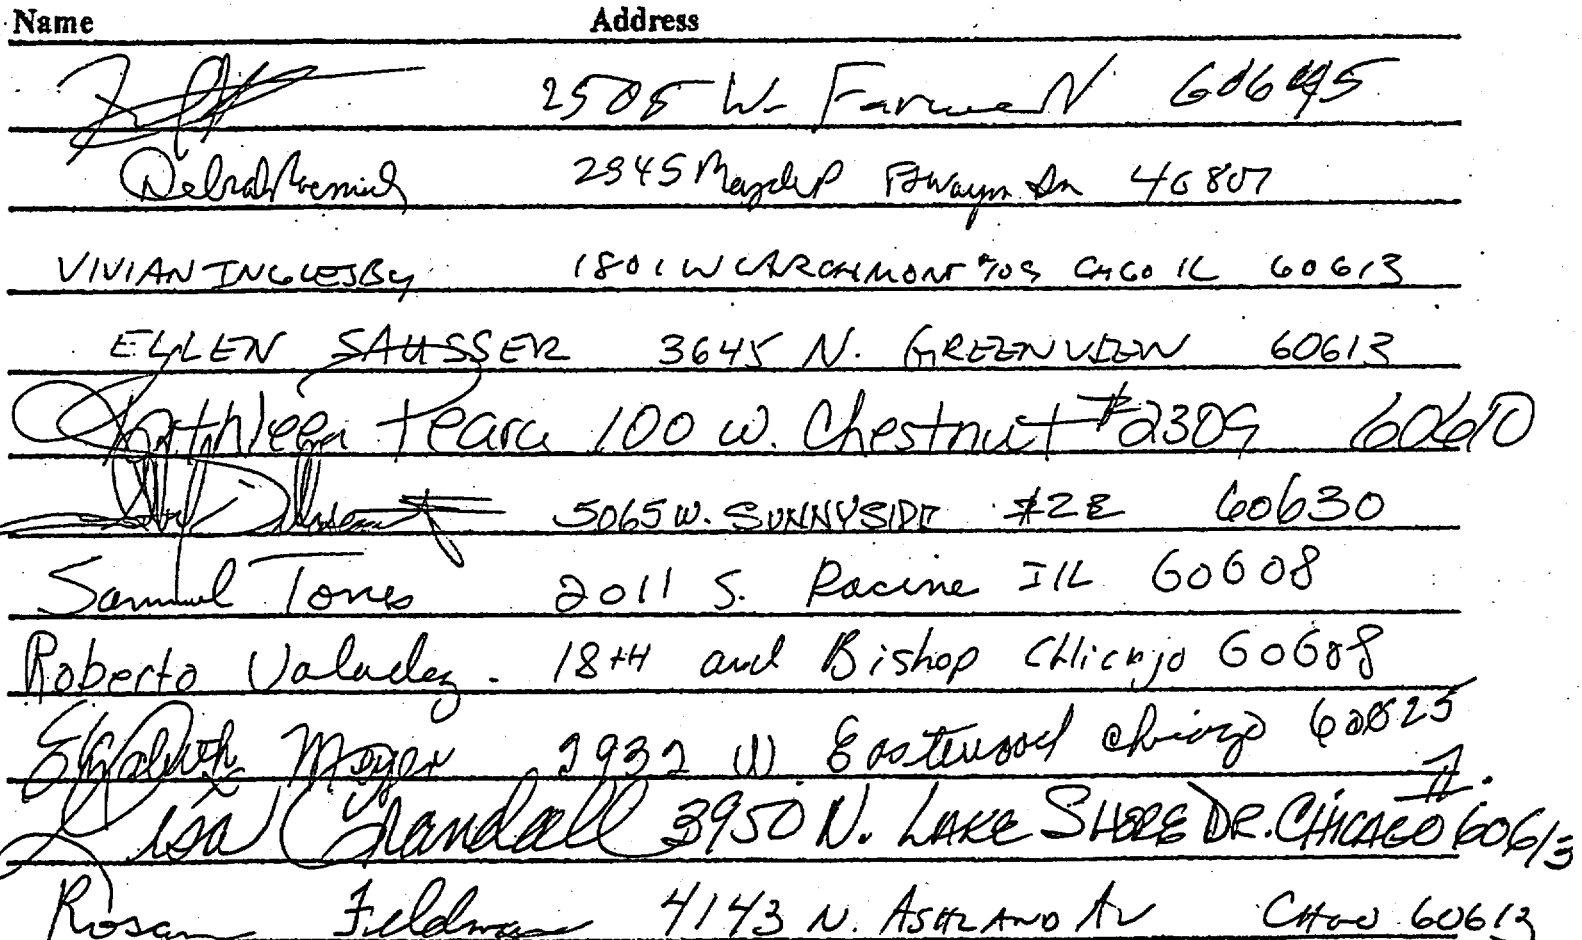 Name Address
2505 W. Farwell 60645
Debrah 2945 Ft Wayne In 46807
VIVIAN INGLESBY 1801 W LARCHMONT #709 CHGO IL 60613
ELLEN SAUSSER 3645 N. GREENVIEW 60613
Kathleen 100 W. Chestnut #2309 60610
5065 W. SUNNYSIDE #2E 60630
Samuel Torres 2011 S. Racine Ill 60608
Roberto Valadez. 18TH and Bishop Chicago 60608
Elizabeth Moyer 2932 W. Eastwood Chicago 60625
Lisa Crandall 3950 N. LAKE SHORE DR. CHICAGO Il. 60613
Rosan Feldman 4143 N. ASHLAND AV CHGO 60613